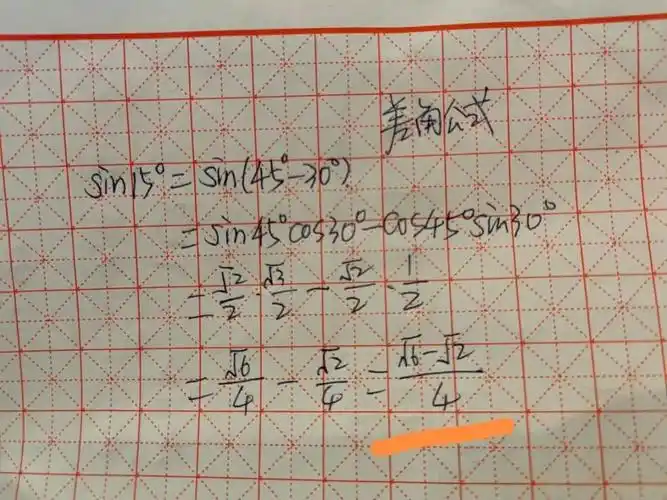 差角公式
sin15°=sin(45°-30°)
=sin45°cos30°-cos45°sin30°
=√2/2·√3/2-√2/2·1/2
=√6/4-√2/4=(√6-√2)/4